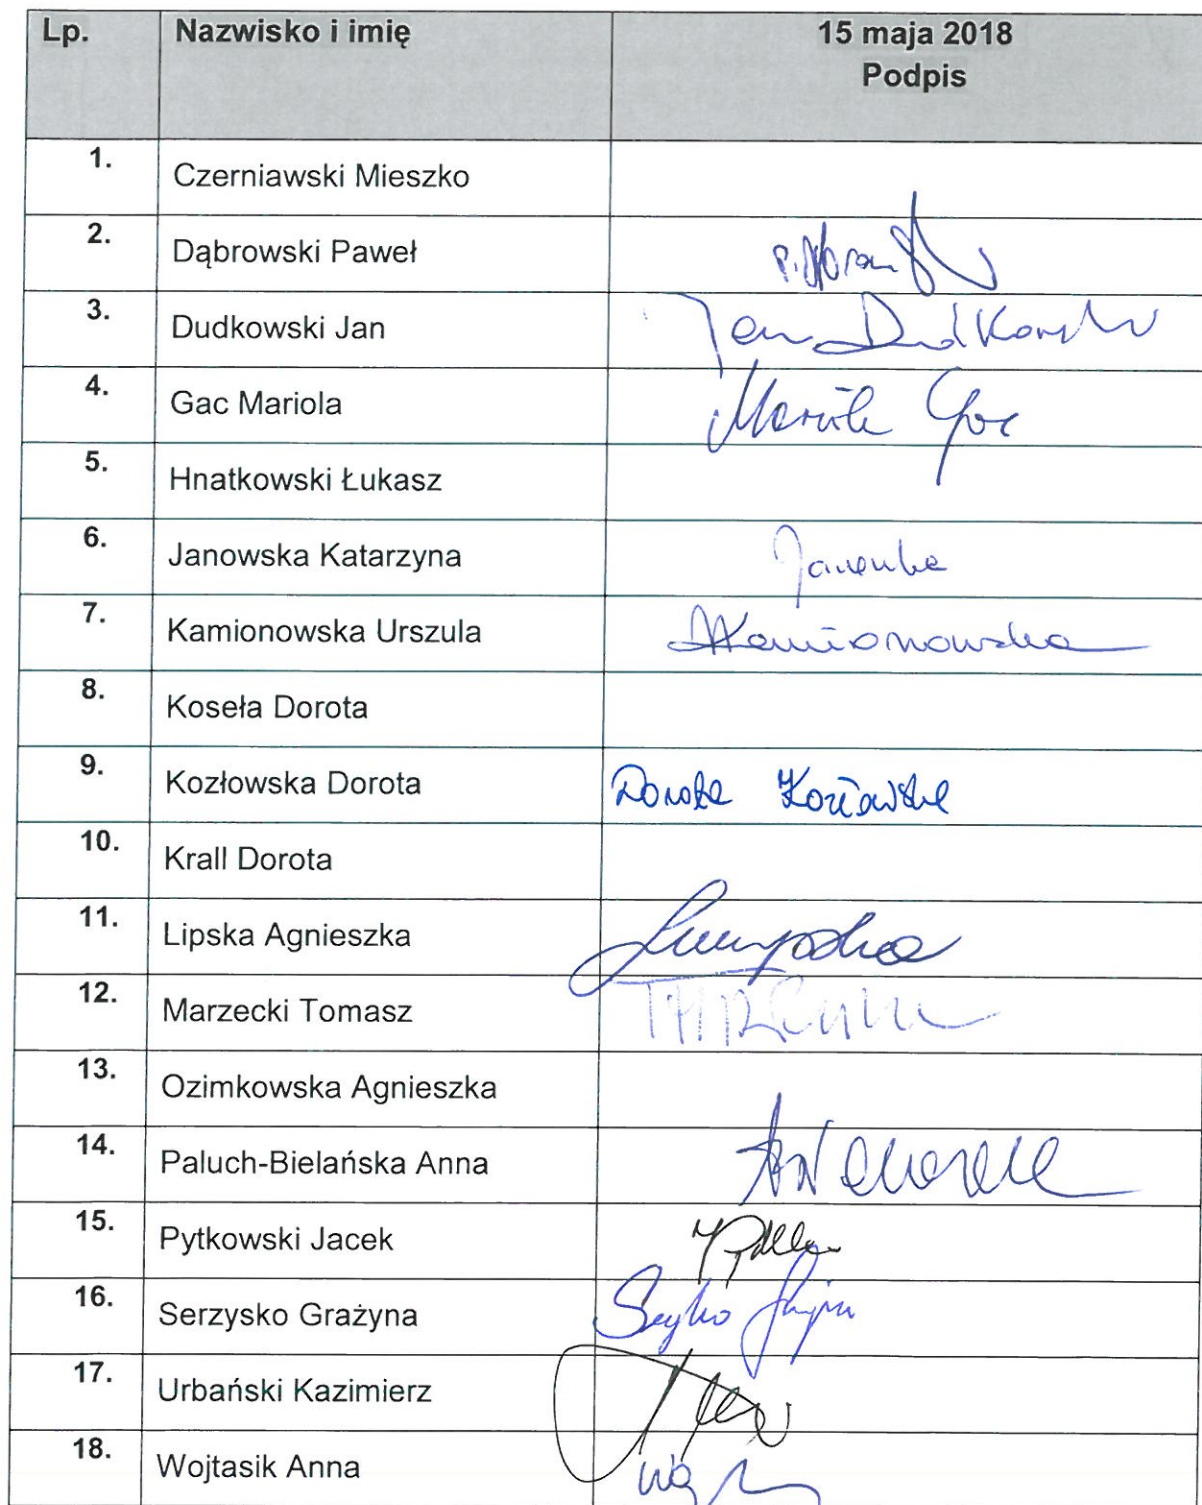 Lp. Nazwisko i imię 15 maja 2018
Podpis
1. Czerniawski Mieszko
2. Dąbrowski Paweł
3. Dudkowski Jan Jan Dudkowski
4. Gac Mariola Mariola Gac
5. Hnatkowski Łukasz
6. Janowska Katarzyna
7. Kamionowska Urszula Kamionowska
8. Koseła Dorota
9. Kozłowska Dorota Dorota Kozłowska
10. Krall Dorota
11. Lipska Agnieszka
12. Marzecki Tomasz
13. Ozimkowska Agnieszka
14. Paluch-Bielańska Anna
15. Pytkowski Jacek
16. Serzysko Grażyna
17. Urbański Kazimierz
18. Wojtasik Anna